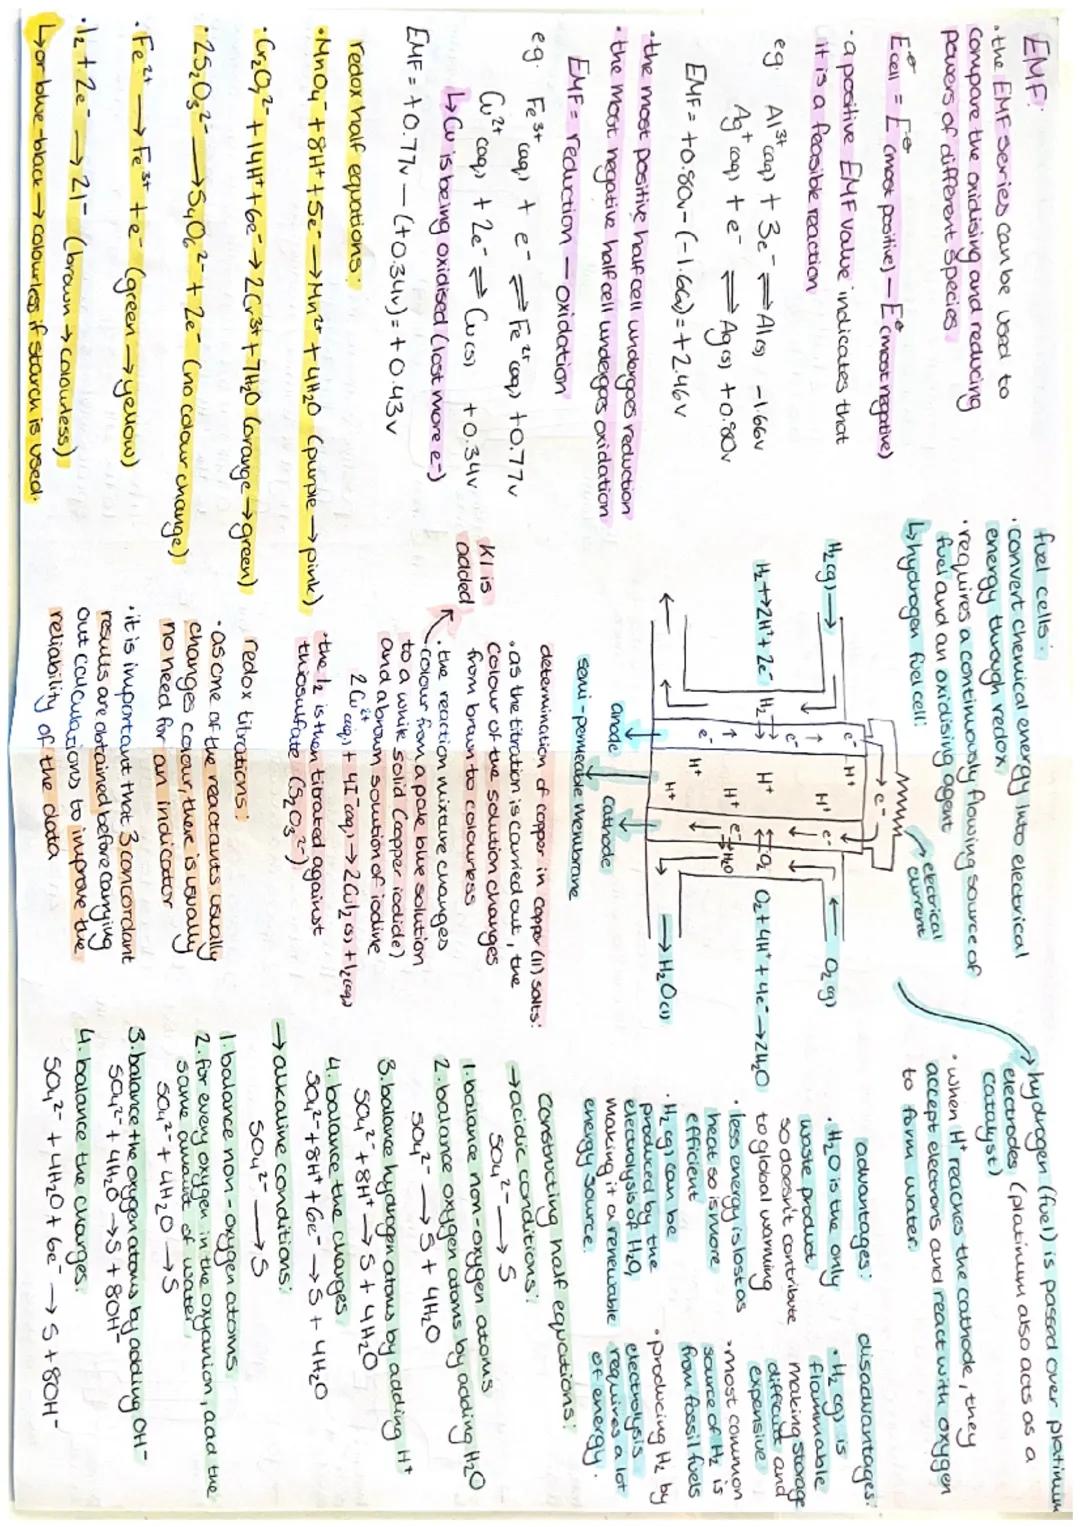 EMF:
• the EMF series can be used to
compare the oxidising and reducing
powers of different species
E⦵cell = E⦵ (most positive) – E⦵ (most negative)
• a positive EMF value indicates that
it is a feasible reaction
eg. Al³⁺(aq) + 3e⁻ ⇌ Al(s) -1.66v
Ag⁺(aq) + e⁻ ⇌ Ag(s) +0.80v
EMF = +0.80v - (-1.66v) = +2.46v
• the most positive half cell undergoes reduction
• the most negative half cell undergoes oxidation
EMF = reduction – oxidation
eg. Fe³⁺(aq) + e⁻ ⇌ Fe²⁺(aq) +0.77v
Cu²⁺(aq) + 2e⁻ ⇌ Cu(s) +0.34v
↳ Cu is being oxidised (lost more e⁻)
EMF = +0.77v – (+0.34v) = +0.43v
redox half equations:
• MnO₄⁻ + 8H⁺ + 5e⁻ → Mn²⁺ + 4H₂O (purple → pink)
• Cr₂O₇²⁻ + 14H⁺ + 6e⁻ → 2Cr³⁺ + 7H₂O (orange → green)
• 2S₂O₃²⁻ → S₄O₆²⁻ + 2e⁻ (no colour change)
• Fe²⁺ → Fe³⁺ + e⁻ (green → yellow)
• I₂ + 2e⁻ → 2I⁻ (brown → colourless)
↳ or blue-black → colourless if starch is used.
fuel cells:
• convert chemical energy into electrical
energy through redox
• requires a continuously flowing source of
fuel and an oxidising agent
↳ hydrogen fuel cell:
electrical
current
e⁻
H₂(g) →
O₂(g)
e⁻ H⁺ H⁺ e⁻
e⁻
H₂ → 2H⁺ + 2e⁻ H₂ H⁺ O₂ O₂ + 4H⁺ + 4e⁻ → 2H₂O
e⁻ H⁺ H⁺ e⁻ H₂O
H⁺
→ H₂O(l)
anode cathode
semi-permeable membrane
determination of copper in copper (II) salts:
• as the titration is carried out, the
colour of the solution changes
from brown to colourless
KI is
added
• the reaction mixture changes
colour from a pale blue solution
to a white solid (copper iodide)
and a brown solution of iodine
2Cu²⁺(aq) + 4I⁻(aq) → 2CuI₂(s) + I₂(aq)
• the I₂ is then titrated against
thiosulfate (S₂O₃²⁻)
redox titrations:
• as one of the reactants usually
changes colour, there is usually
no need for an indicator
• it is important that 3 concordant
results are obtained before carrying
out calculations to improve the
reliability of the data
hydrogen (fuel) is passed over platinum
electrodes (platinum also acts as a
catalyst)
• when H⁺ reaches the cathode, they
accept electrons and react with oxygen
to form water.
advantages:
• H₂O is the only
waste product
so doesn't contribute
to global warming
• less energy is lost as
heat so is more
efficient
• H₂(g) can be
produced by the
electrolysis of H₂O,
making it a renewable
energy source.
disadvantages:
• H₂(g) is
flammable
making storage
difficult and
expensive
• most common
source of H₂ is
from fossil fuels
• producing H₂ by
electrolysis
requires a lot
of energy.
constructing half equations:
→ acidic conditions:
SO₄²⁻ → S
1. balance non-oxygen atoms
2. balance oxygen atoms by adding H₂O
SO₄²⁻ → S + 4H₂O
3. balance hydrogen atoms by adding H⁺
SO₄²⁻ + 8H⁺ → S + 4H₂O
4. balance the charges
SO₄²⁻ + 8H⁺ + 6e⁻ → S + 4H₂O
→ alkaline conditions:
SO₄²⁻ → S
1. balance non-oxygen atoms
2. for every oxygen in the oxyanion, add the
same amount of water
SO₄²⁻ + 4H₂O → S
3. balance the oxygen atoms by adding OH⁻
SO₄²⁻ + 4H₂O → S + 8OH⁻
4. balance the charges.
SO₄²⁻ + 4H₂O + 6e⁻ → S + 8OH⁻